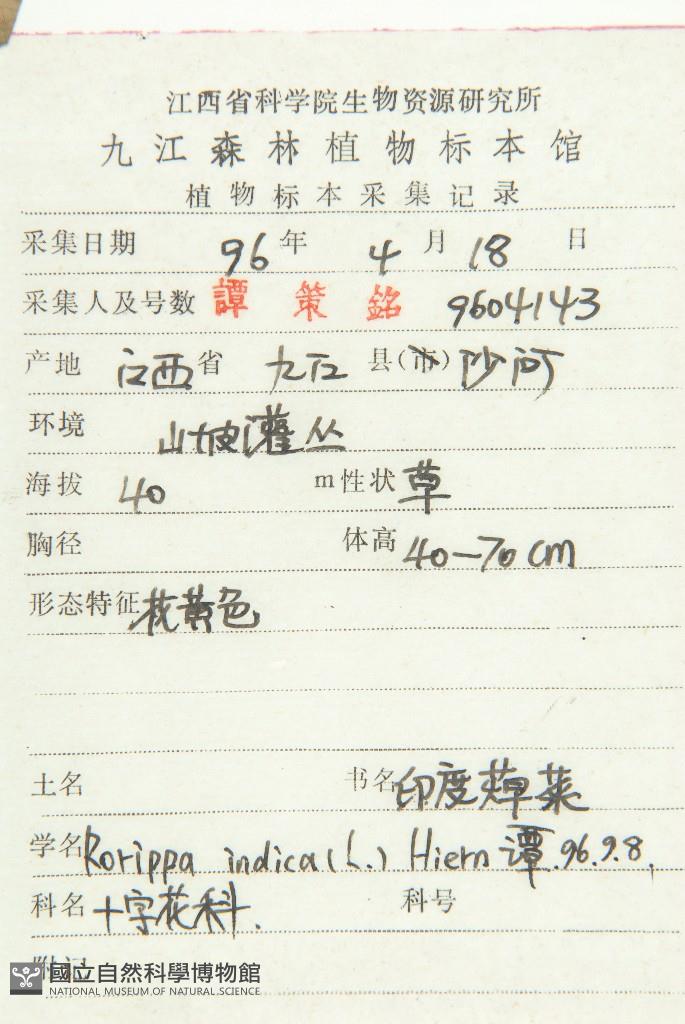 江西省科学院生物资源研究所
九江森林植物标本馆
植物标本采集记录
采集日期 96 年 4 月 18 日
采集人及号数 譚 策 銘 9604143
产地 江西 省 九江 县(市) 沙河
环境 山坡灌丛
海拔 40 m 性状 草
胸径 体高 40-70 cm
形态特征 花黄色
土名 书名 印度蔊菜
学名 Rorippa indica (L.) Hiern 譚.96.9.8.
科名 十字花科. 科号
附记
國立自然科學博物館
NATIONAL MUSEUM OF NATURAL SCIENCE